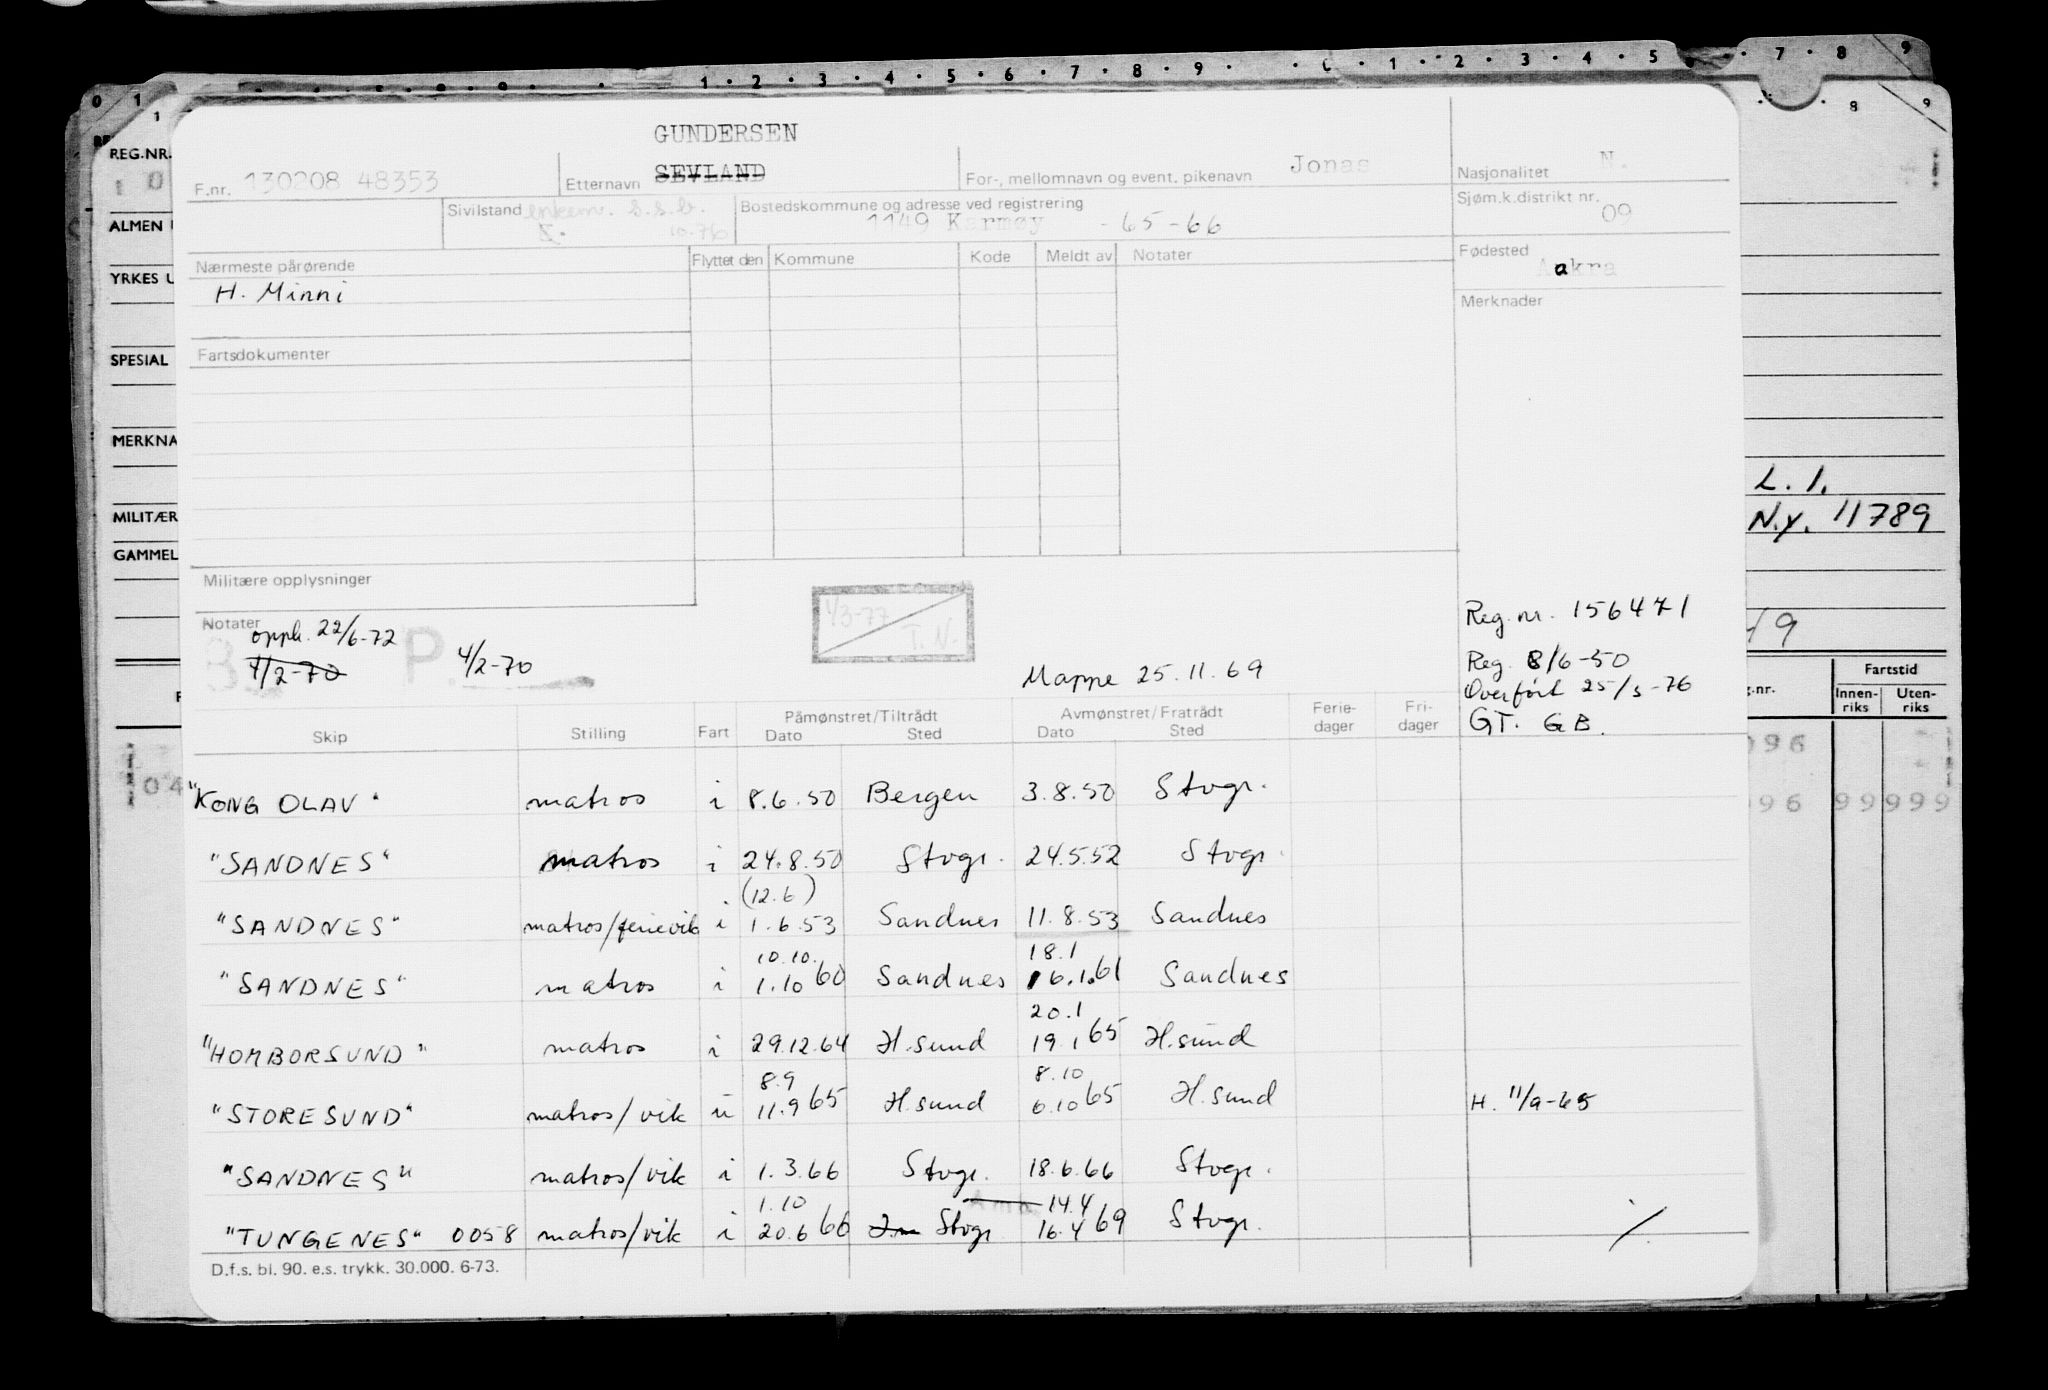 GUNDERSEN
F.nr. 130208 48353 Etternavn SEVLAND For-, mellomnavn og event. pikenavn Jonas Nasjonalitet N.
Sivilstand enkem. s.s.b. 10.76 Bostedskommune og adresse ved registrering 1149 Karmøy - 65-66 Sjøm.k.distrikt nr. 09
Nærmeste pårørende Flyttet den Kommune Kode Meldt av Notater Fødested Aakra
H. Minni Merknader
Fartsdokumenter
Militære opplysninger
Notater 1/3-77 T.N. Reg. nr. 156471
opph. 22/6-72 P. 4/2-70 Reg. 8/6-50
4/2-70 Mappe 25.11.69 Overført 25/5-76
GT. GB.
Påmønstret/Tiltrådt Avmønstret/Fratrådt Ferie-dager Fri-dager
Skip Stilling Fart Dato Sted Dato Sted
"KONG OLAV" matros i 8.6.50 Bergen 3.8.50 Stvgr.
"SANDNES" matros i 24.8.50 Stvgr. 24.5.52 Stvgr.
(12.6)
"SANDNES" matros/ferievik i 1.6.53 Sandnes 11.8.53 Sandnes
10.10. 18.1
"SANDNES" matros i 1.10 60 Sandnes 16.1.61 Sandnes
20.1
"HOMBORSUND" matros i 29.12.64 H.sund 19.1 65 H.sund
8.9 8.10
"STORESUND" matros/vik u 11.9 65 H.sund 6.10 65 H.sund H. 11/9-65
"SANDNES" matros/vik i 1.3.66 Stvgr. 18.6.66 Stvgr.
1.10 14.4
"TUNGENES" 0058 matros/vik i 20.6 66 Stvgr 16.4 69 Stvgr.
D.f.s. bl. 90. e.s. trykk. 30.000. 6-73.
REG.NR.
ALMEN
YRKES U
SPESIAL
MERKNA
MILITÆR
GAMMEL
L. I.
N.Y. 11789
Fartstid
Innen-riks Uten-riks
096
96 99 999